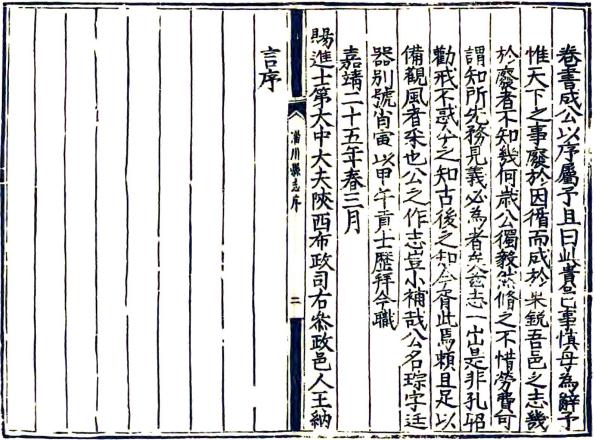 卷書成公以序屬予且曰此貴邑事慎毋為辭予
惟天下之事廢於因循而成於果銳吾邑之志幾
於廢者不知幾何歲公獨毅然脩之不惜勞費可
謂知所先務見義必為者矣茲志一出是非孔昭
勸戒不惑今之知古後之知今胥此焉賴且足以
備觀風者采也公之作志豈小補哉公名琮字廷
器別號肖寅以甲午貢士歷拜今職
嘉靖二十五年春三月
賜進士第大中大夫陝西布政司右參政邑人王納
言序
川縣志序
二